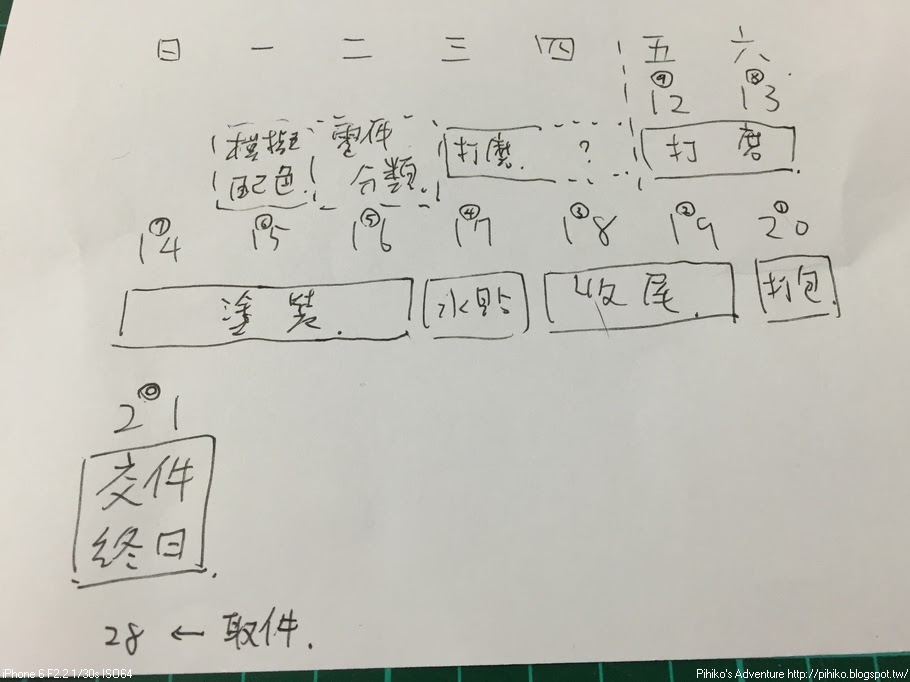 日 一 二 三 四 五 六
⑨ ⑧
12 13
模擬 零件 打磨 ? 打磨
配色 分類
⑦ ⑥ ⑤ ④ ③ ② ①
14 15 16 17 18 19 20
塗裝 水貼 收尾 打包
⓪
21
交件
終日
28 ← 取件.
iPhone 6 F2.2 1/30s ISO64
Pihiko's Adventure http://pihiko.blogspot.tw/